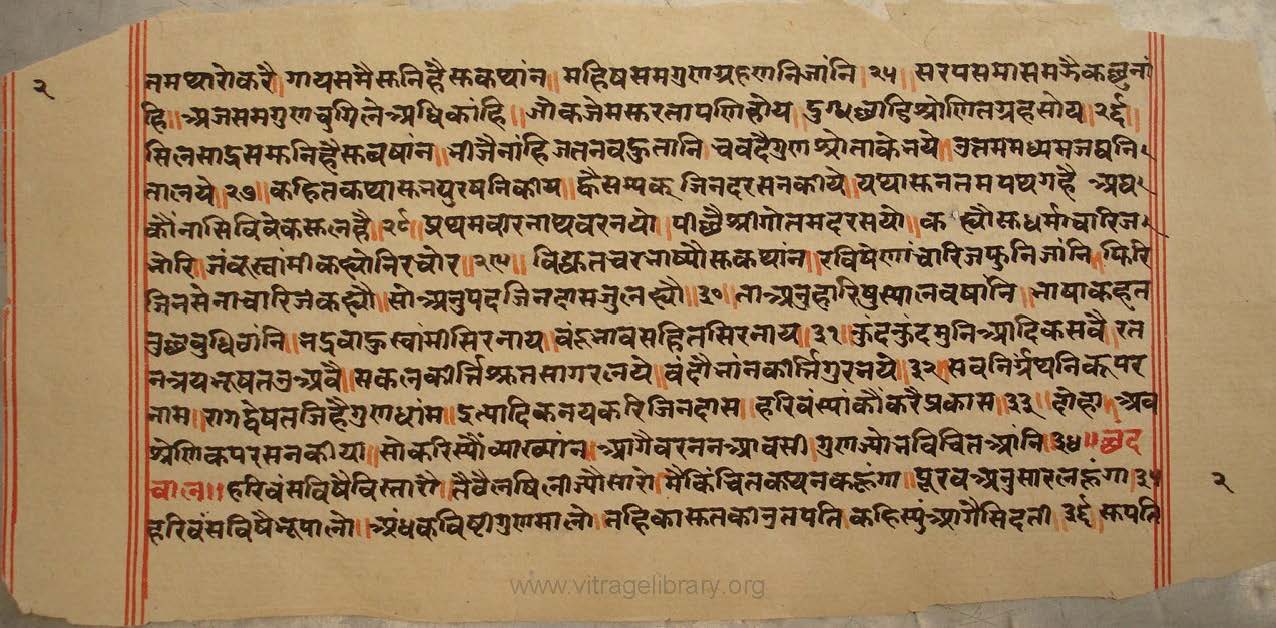 २
नमथारोकरै॥ गायसमैसुनिहैसुकथांन॥ महिषसमगुणग्रहणनिजांनि॥ २५॥ सरपसमासमऊैकछुनां
हि॥ अजसमगुणचुगिलेअधिकांहि॥ जोकजेमसुरतापणिहोय॥ दुग्धछांडिश्रोणितग्रहसोय॥ २६॥
सिलसाद्रसमनिहैसुवषांन॥ नीजैनांहिजतनवहुतानि॥ चवदैगुणश्रोताकेनये॥ उतममध्यमजघनि
तालये॥ २७॥ कहितकथासुनपुरषनिकीय॥ द्वैसम्पक्जिनदरसनकीये॥ यथासुनतमपथगहै॥ अघ
कौंनासिविवेकसुलहै॥ २८॥ प्रथमवीरनाथवरनयो॥ पीछैश्रीगोतमदरसयो॥ कह्यौसुधर्माचारिज
वोरि॥ जंवूस्वांमीकह्योनिरवोर॥ २९॥ विद्युतचरनाष्यौसुकथांन॥ रविषेणांचारिजफुनिजांनि॥ फिरि
जिनसेनाचारिजकह्यौ॥ सोअनुपदजिनदासजुलह्यौ॥ ३०॥ ताअनुहारिषुस्यालवषांनि॥ नाषाकहत
तुछवुधिठांनि॥ नद्रवाहुस्वांमीसिरनाय॥ वंदूंनावसहितसिरनाय॥ ३१॥ कुंदकुंदमुनिआदिकसवै॥ रत
नत्रयनूषतउअवै॥ सकलकीर्त्तिश्रुतसागरलये॥ वंदौंनांनकीर्त्तिगुरनये॥ ३२॥ सवनिर्ग्रंथनिकूंपर
नाम॥ रागद्वेषतजिहैगुणधांम॥ इत्यादिकनयकरिजिनदास॥ हरिवंस्यांकौंकरैप्रकास॥ ३३॥ होहा॥ अव
श्रेणिकपरसनकीया॥ सोकरिस्यौंव्याख्यांन॥ आगैवरननआवसी॥ गुणज्योंतविचितआंनि॥ ३४॥ छंद
चाल॥ हरिवंसविषैविस्तारो॥ तैवैलषिलीज्यौसारो॥ मैकिंचितकथनकहूंगा॥ पूरवअनुसारलहूगा॥ ३५
हरिवंसविषैनूपालो॥ अंधकविष्टीगुणमालो॥ तहिकासुतकीउतपति॥ कहिस्पुंआगैंसिदती॥ ३६॥ सुपति
२
www.vitragelibrary.org